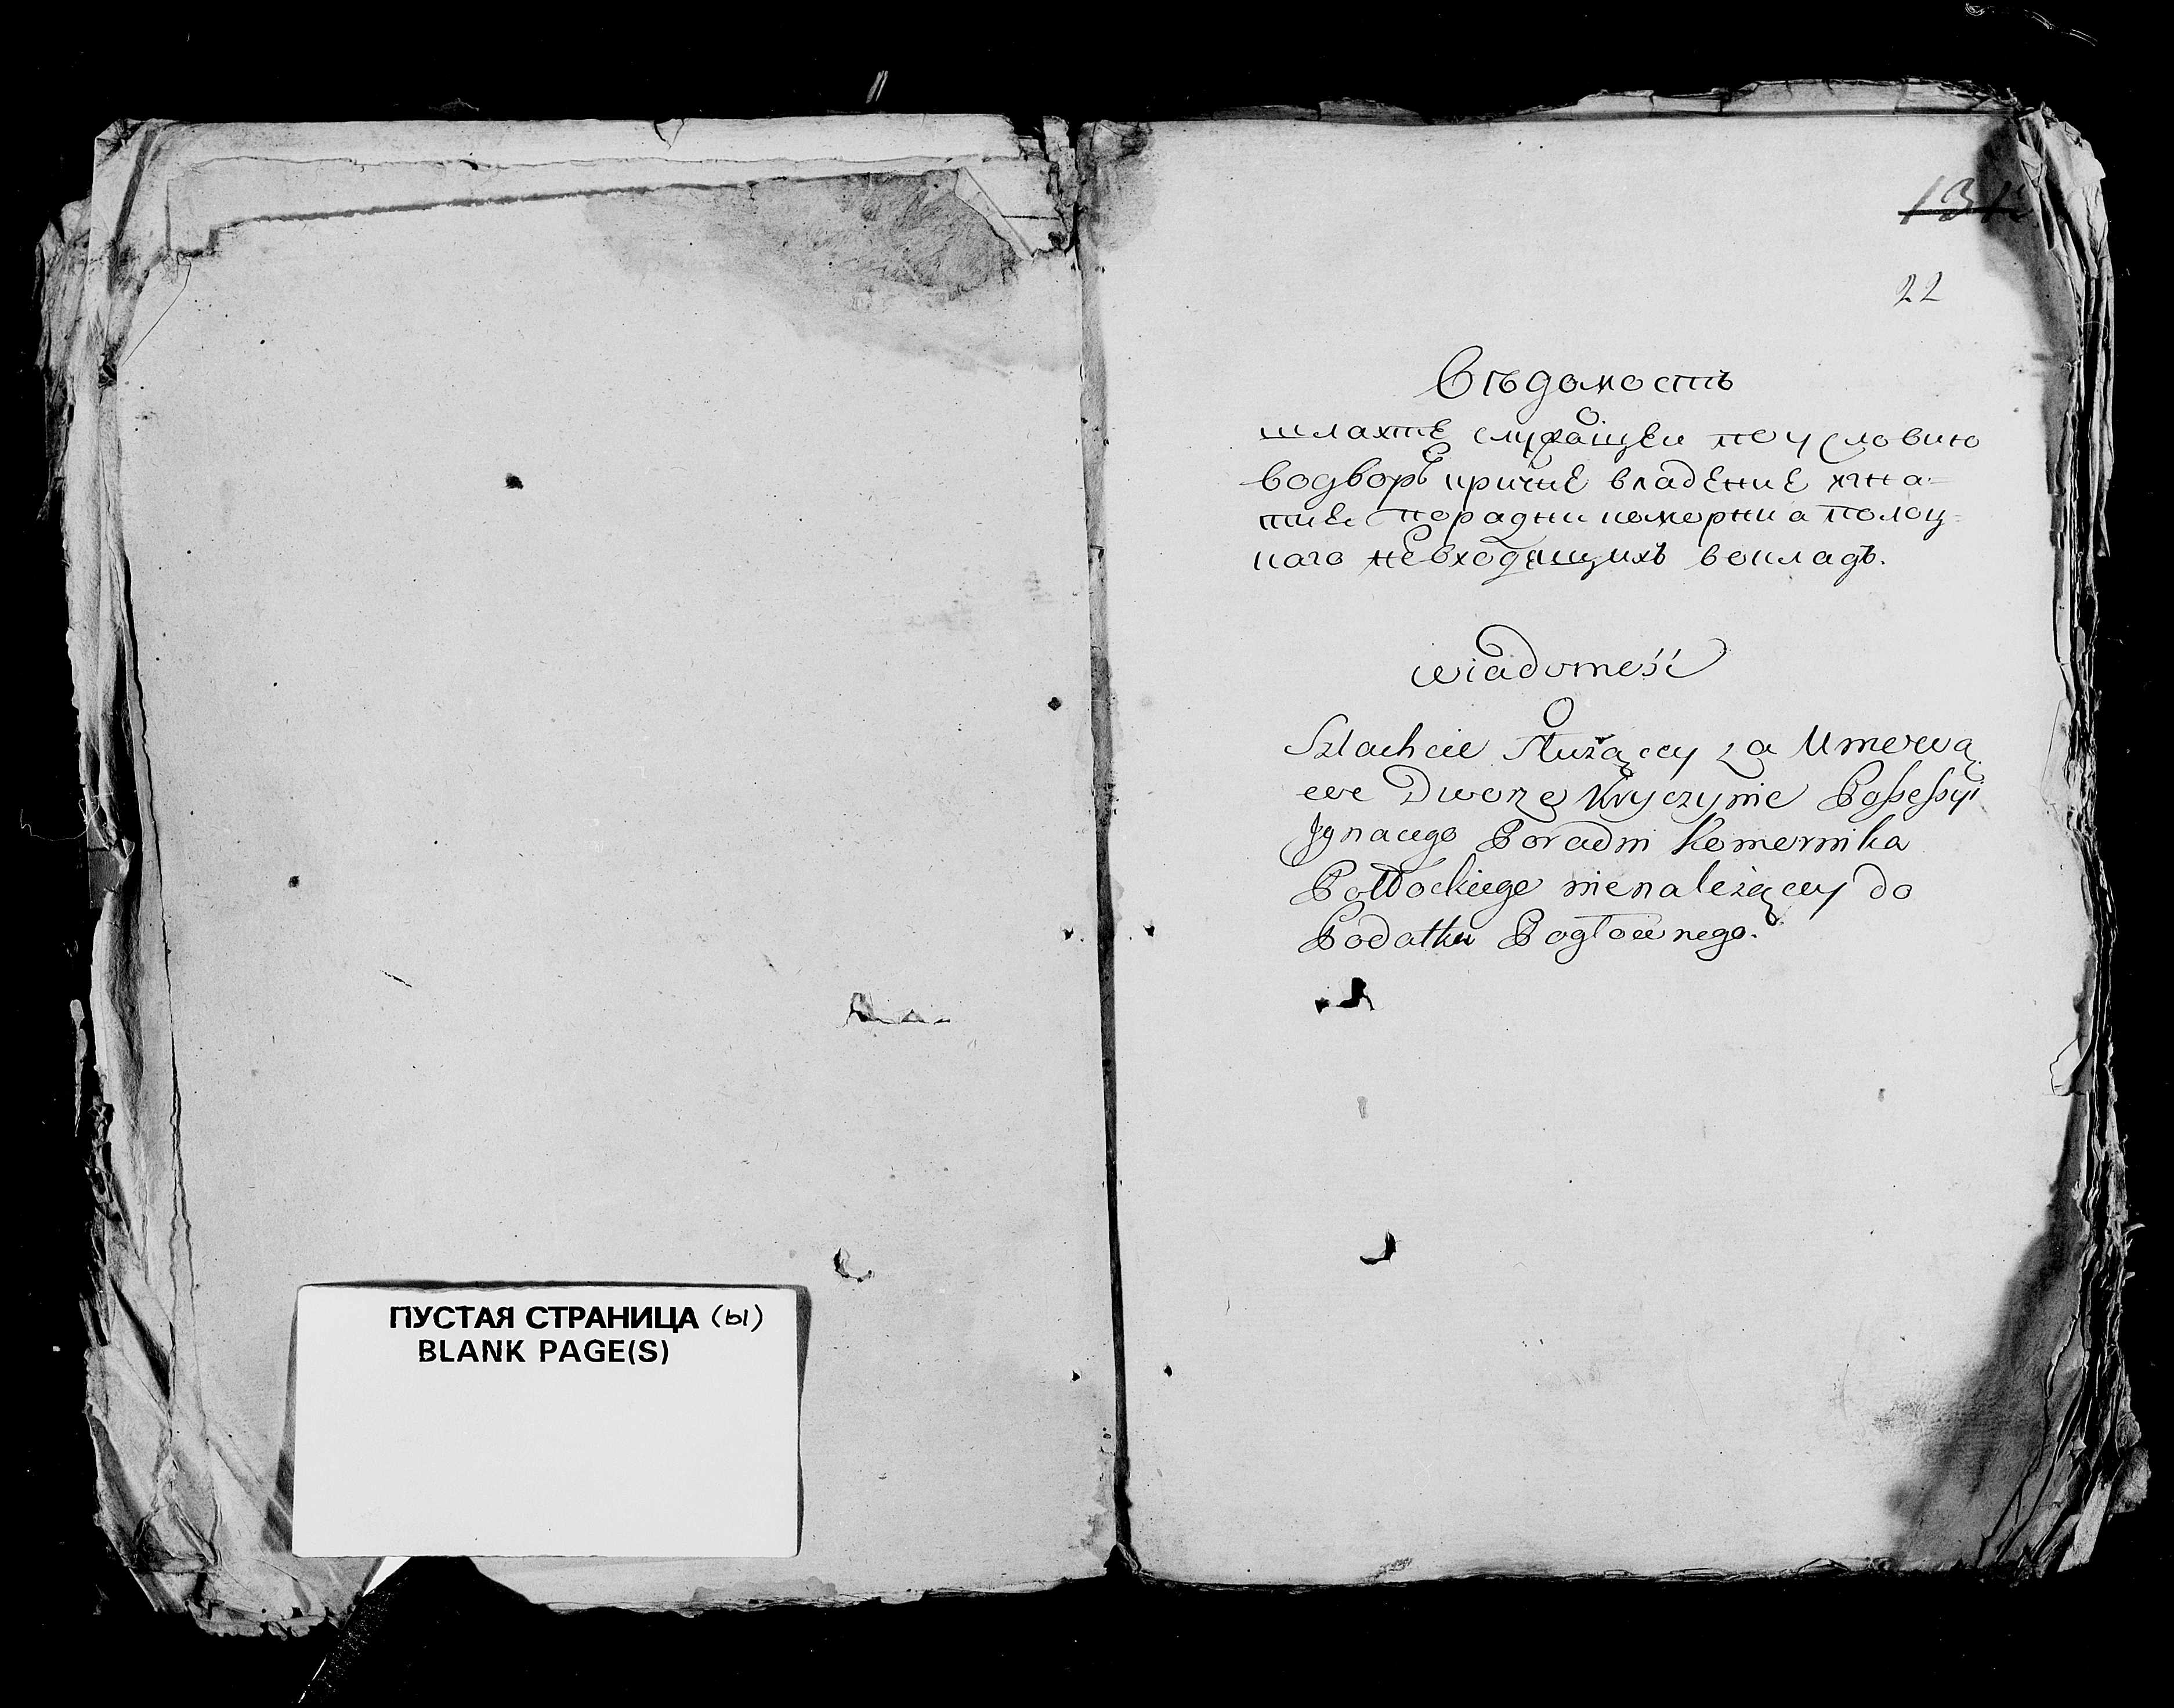 ПУСТАЯ СТРАНИЦА (ы)
BLANK PAGE(S)
22
Вѣдомость
О
шляхте служащеи по условию
водворѣ кричине владение игна-
тия порадни коморника полоц-
каго невходящихъ вокладъ.
wiadomość
O
Szlachcie Służącey za Umową
we Dworze Kryczynie Possessyi
Ignacego Poradni Komornika
Połłockiego nienależącey do
Podatku Pogłownego.